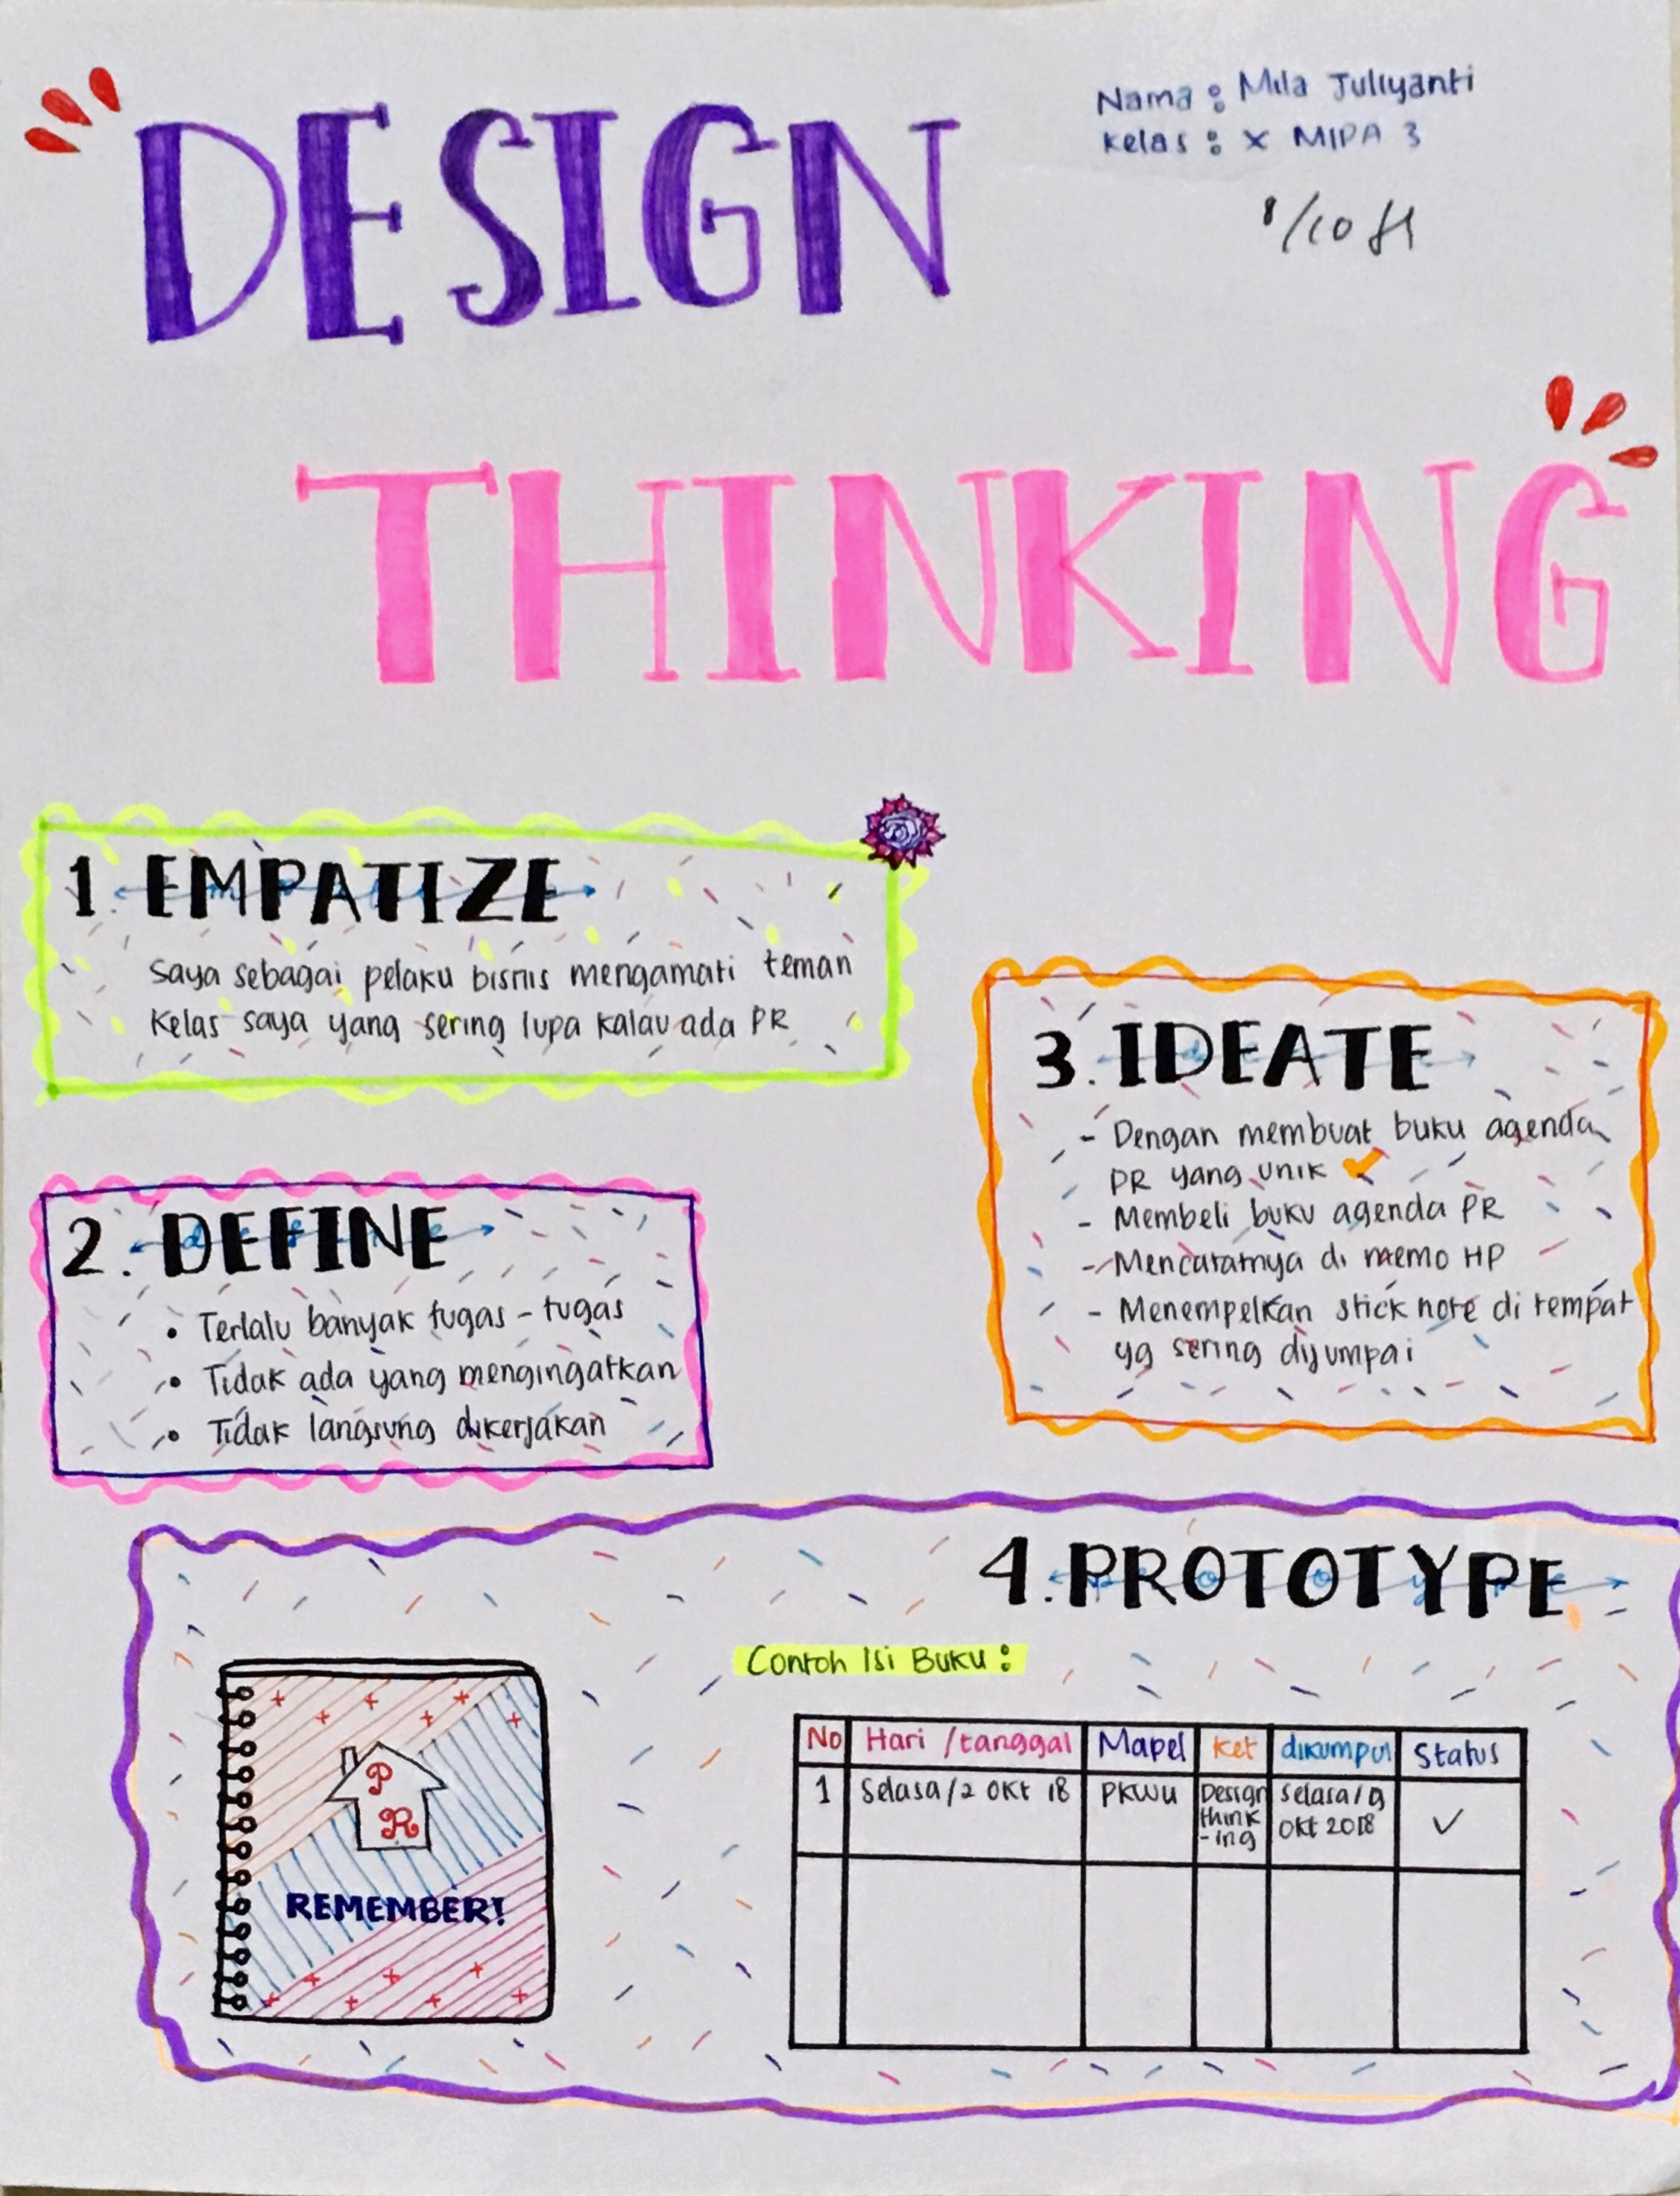 DESIGN
THINKING
Nama : Mila Juliyanti
Kelas : X MIPA 3
1. EMPATIZE
Saya sebagai pelaku bisnis mengamati teman
Kelas saya yang sering lupa kalau ada PR
2. DEFINE
• Terlalu banyak tugas - tugas
• Tidak ada yang mengingatkan
• Tidak langsung dikerjakan
3. IDEATE
- Dengan membuat buku agenda
PR yang unik ✓
- Membeli buku agenda PR
- Mencatatnya di memo HP
- Menempelkan stick note di tempat
yg sering dijumpai
4. PROTOTYPE
P
R
REMEMBER!
Contoh Isi Buku :
No Hari / tanggal Mapel Ket dikumpul Status
1 Selasa / 2 Okt 18 PKWU Design think-ing Selasa / 9 Okt 2018 ✓